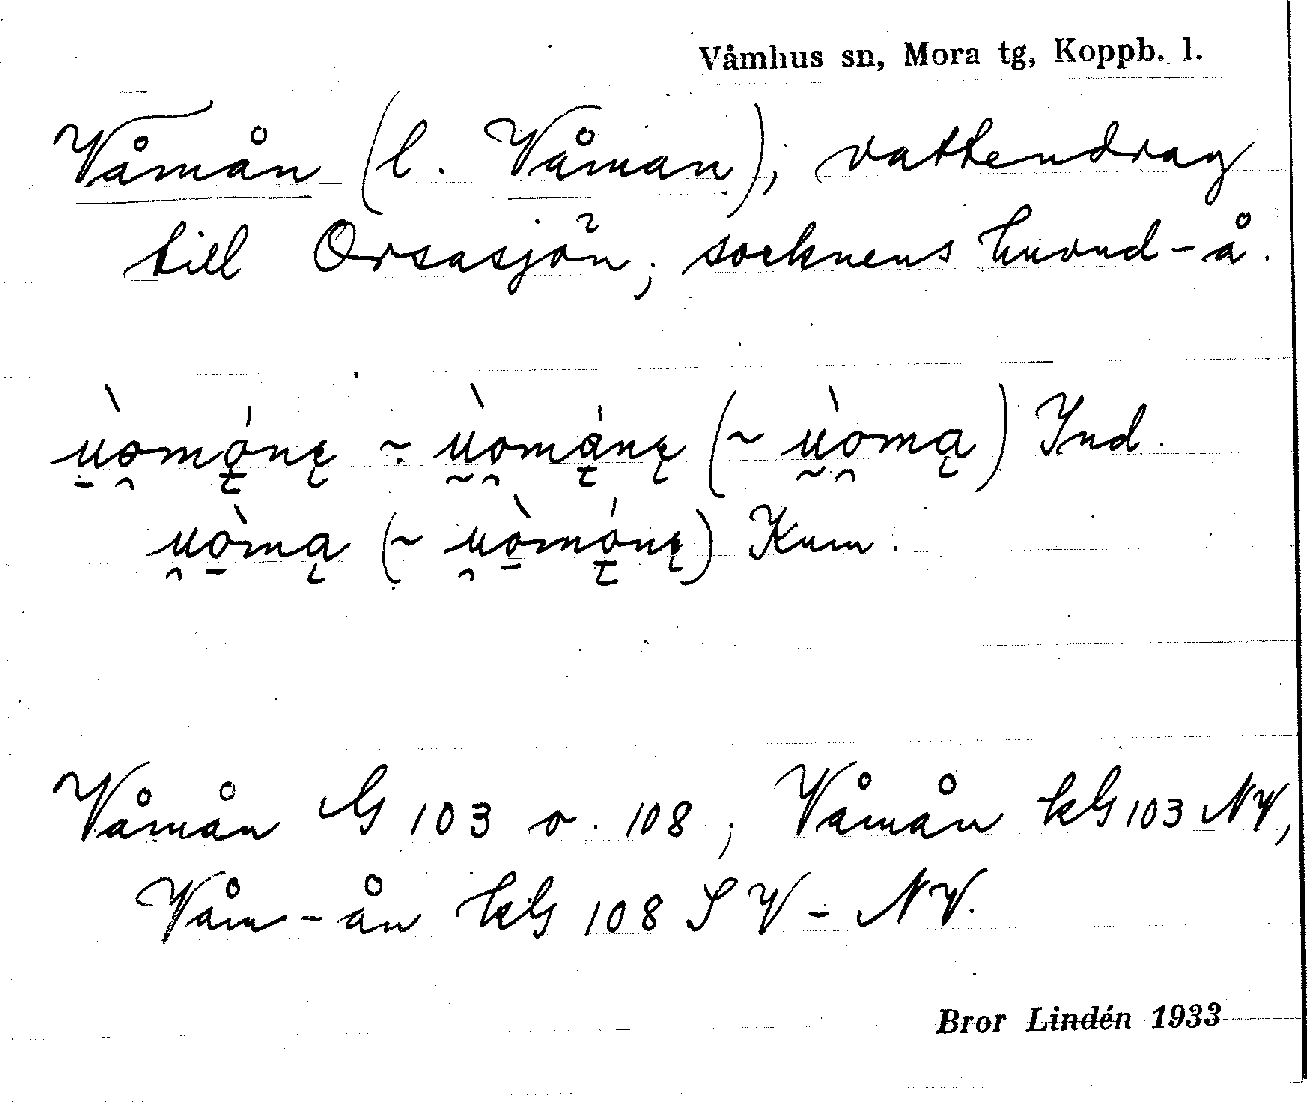 Våmhus sn, Mora tg, Koppb. l.
Våmån (l. Våman), vattendrag
till Orsasjön; socknens huvud-å.
Ind.
Kum.
Våmån G 103 o. 108, Våmån kG 103 NV,
Våm-ån kG 108 SV - NV.
Bror Lindén 1933